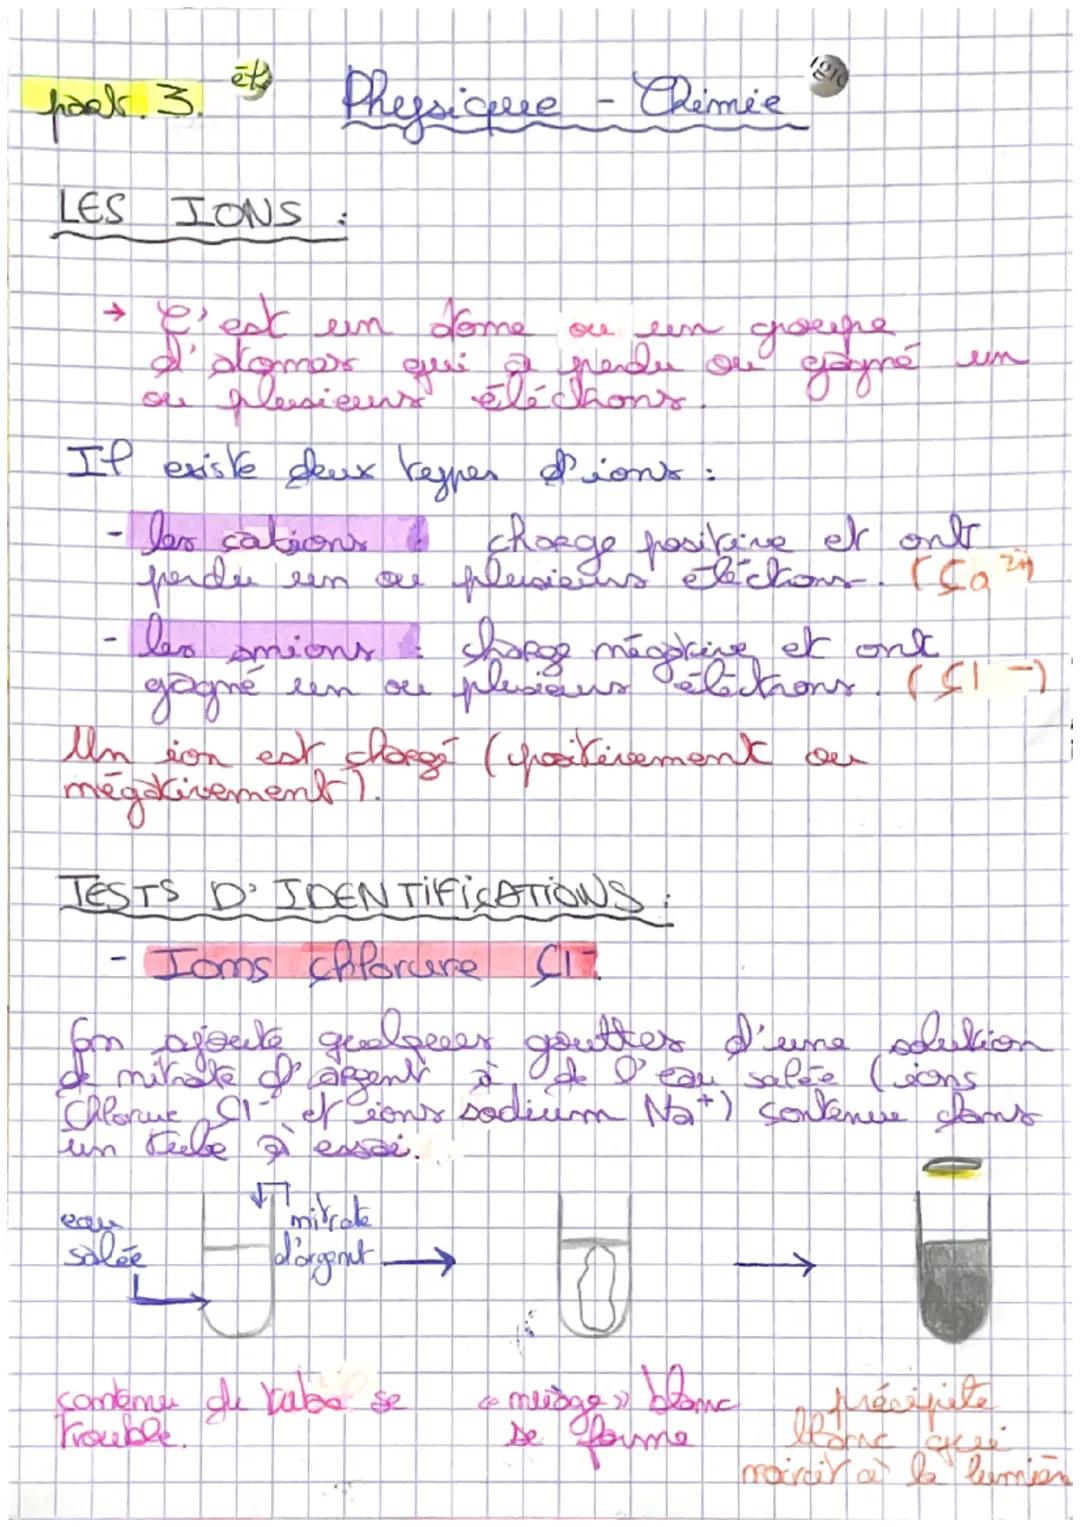 part. 3.
Physique - Chimie
LES IONS :
→ C'est un atome ou un groupe
d'atomes qui a perdu ou gagné un
ou plusieurs éléctrons.
Il existe deux types d'ions :
- les cations : charge positive et ont
perdu un ou plusieurs éléctrons. (Ca²⁺)
- les anions : charge négative et ont
gagné un ou plusieurs éléctrons. (Cl⁻)
Un ion est chargé (positivement ou
négativement).
TESTS D'IDENTIFICATIONS :
- Ions chlorure Cl⁻.
On ajoute quelques gouttes d'une solution
de nitrate d'argent à de l'eau salée (ions
Chlorure Cl⁻ et ions sodium Na⁺) contenue dans
un tube à essai.
eau
salée
nitrate
d'argent
contenu du tube se
trouble.
« nuage » blanc
se forme
précipité
blanc qui
noircit à la lumière